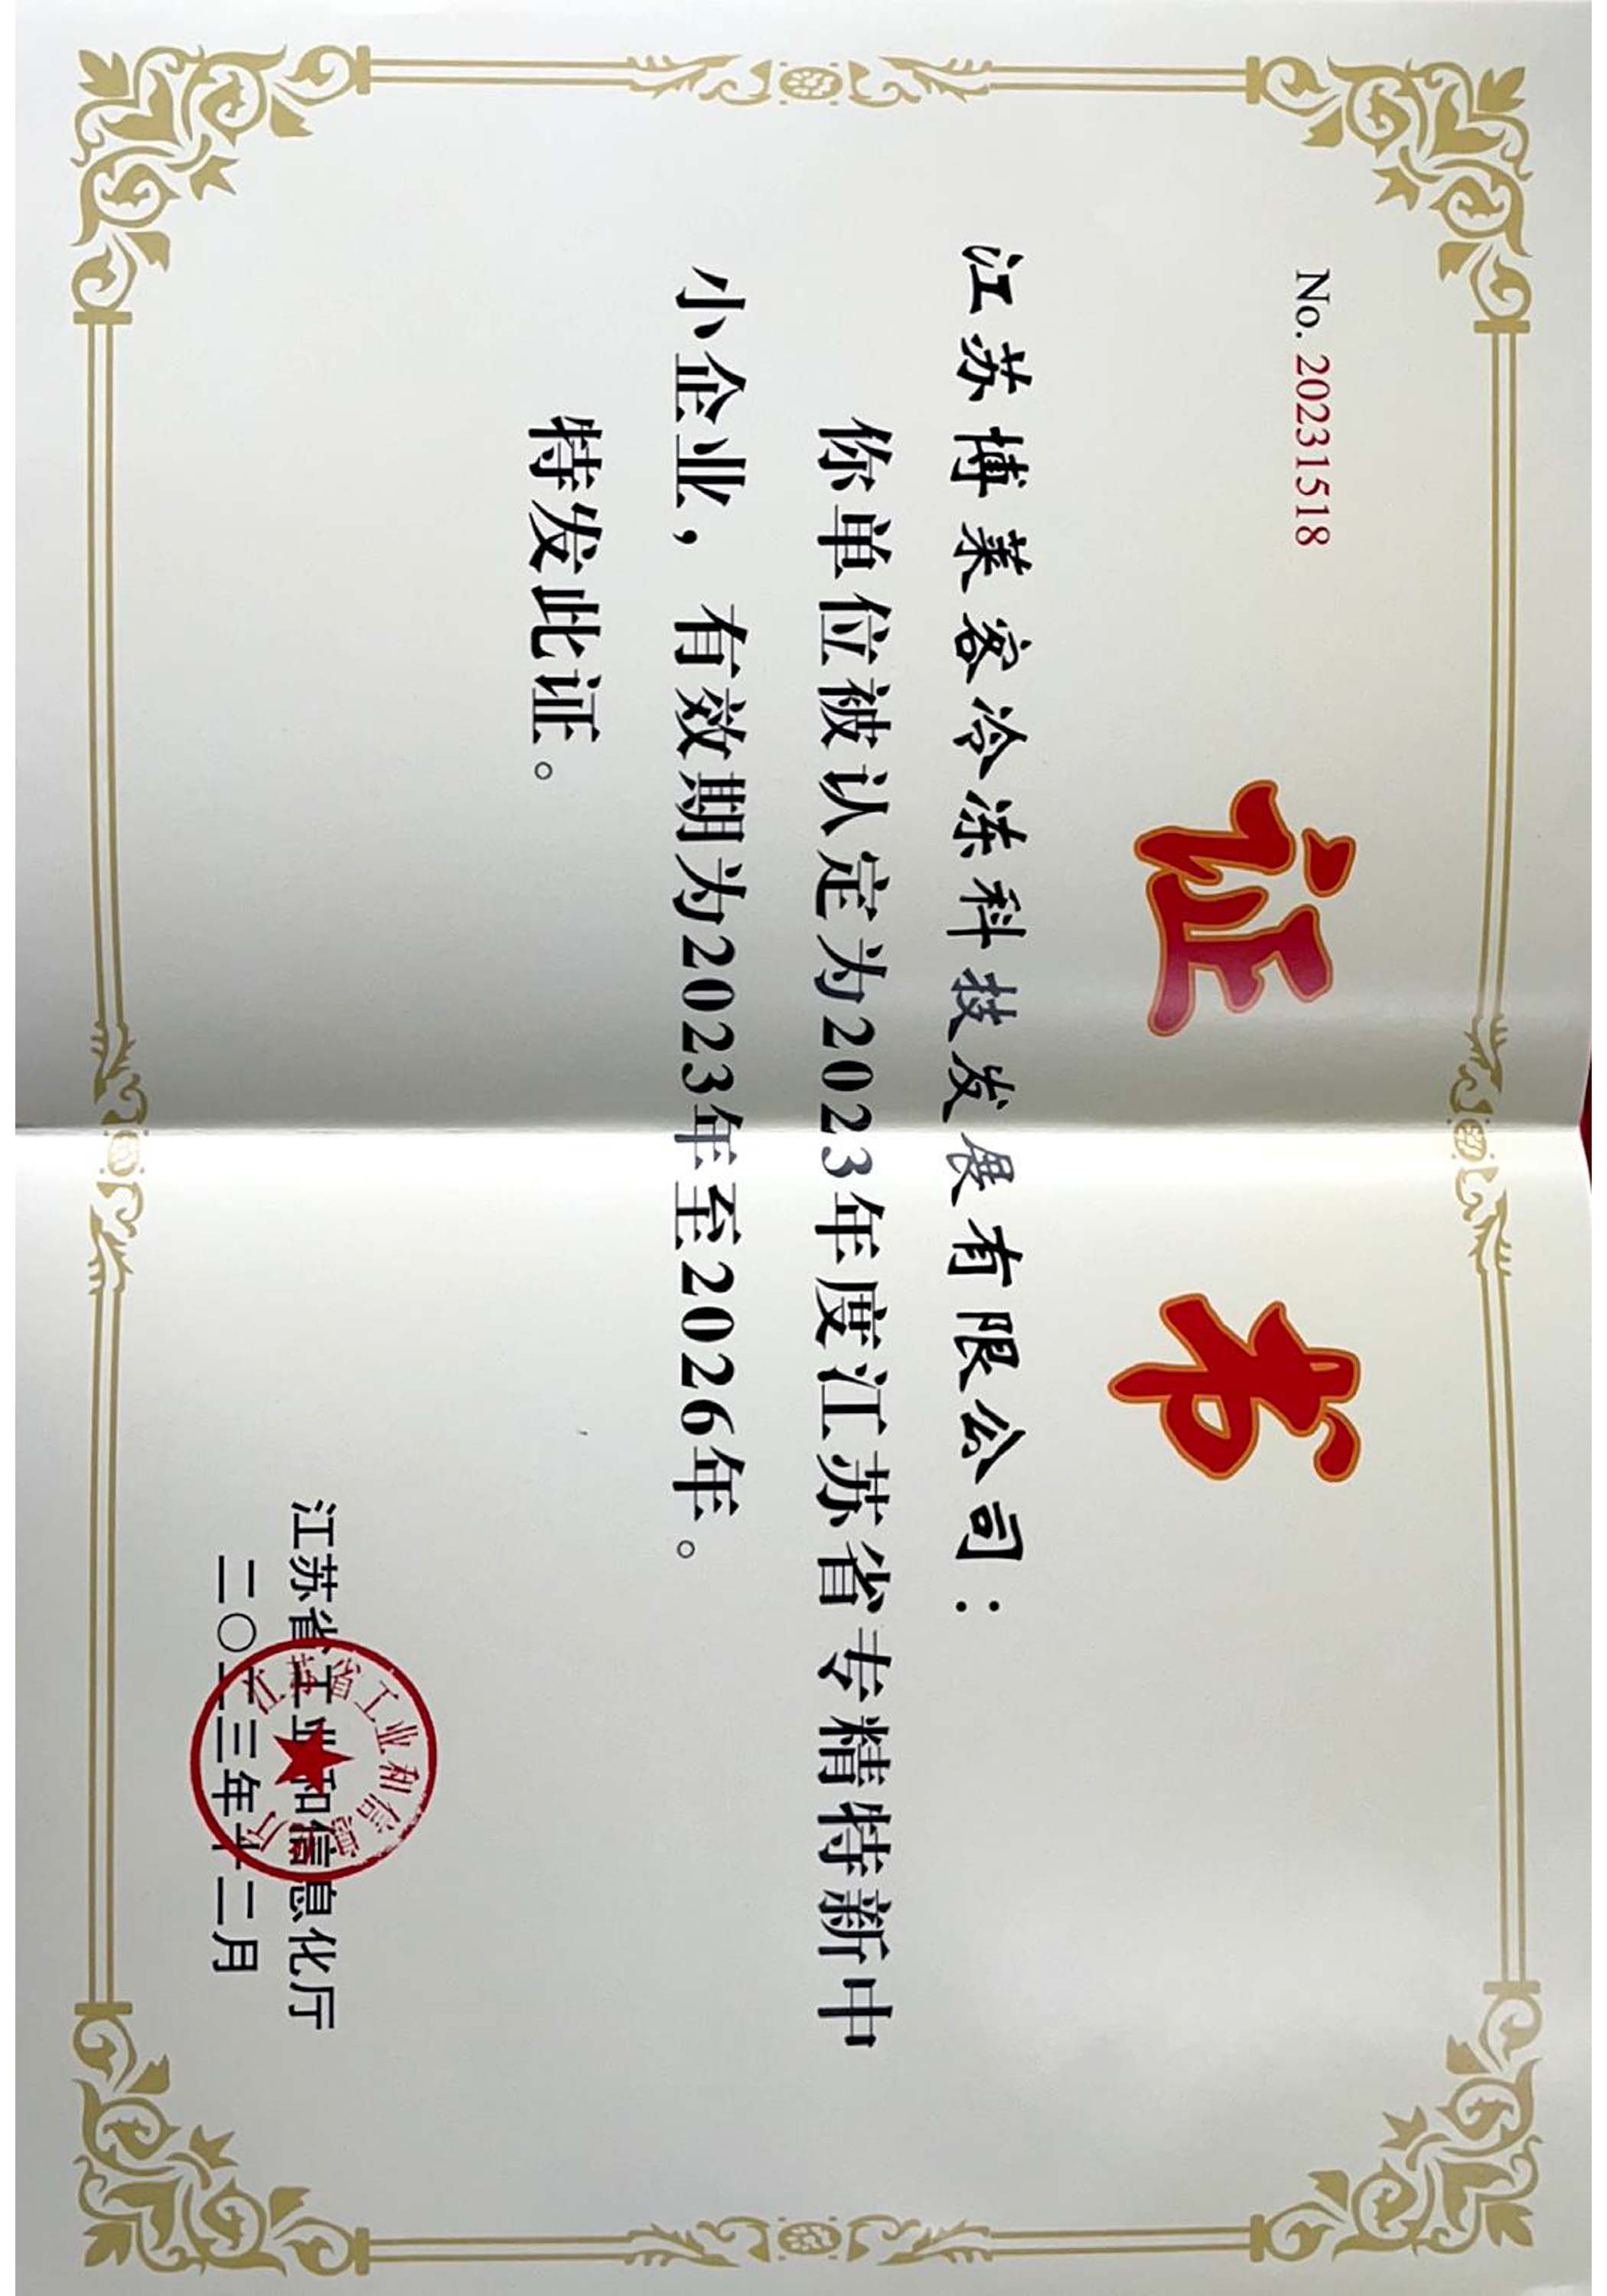 No. 20231518
证书
江苏博莱客冷冻科技发展有限公司：
你单位被认定为2023年度江苏省专精特新中
小企业，有效期为2023年至2026年。
特发此证。
江苏省工业和信息化厅
二〇二三年十二月
江苏省工业和信息化厅